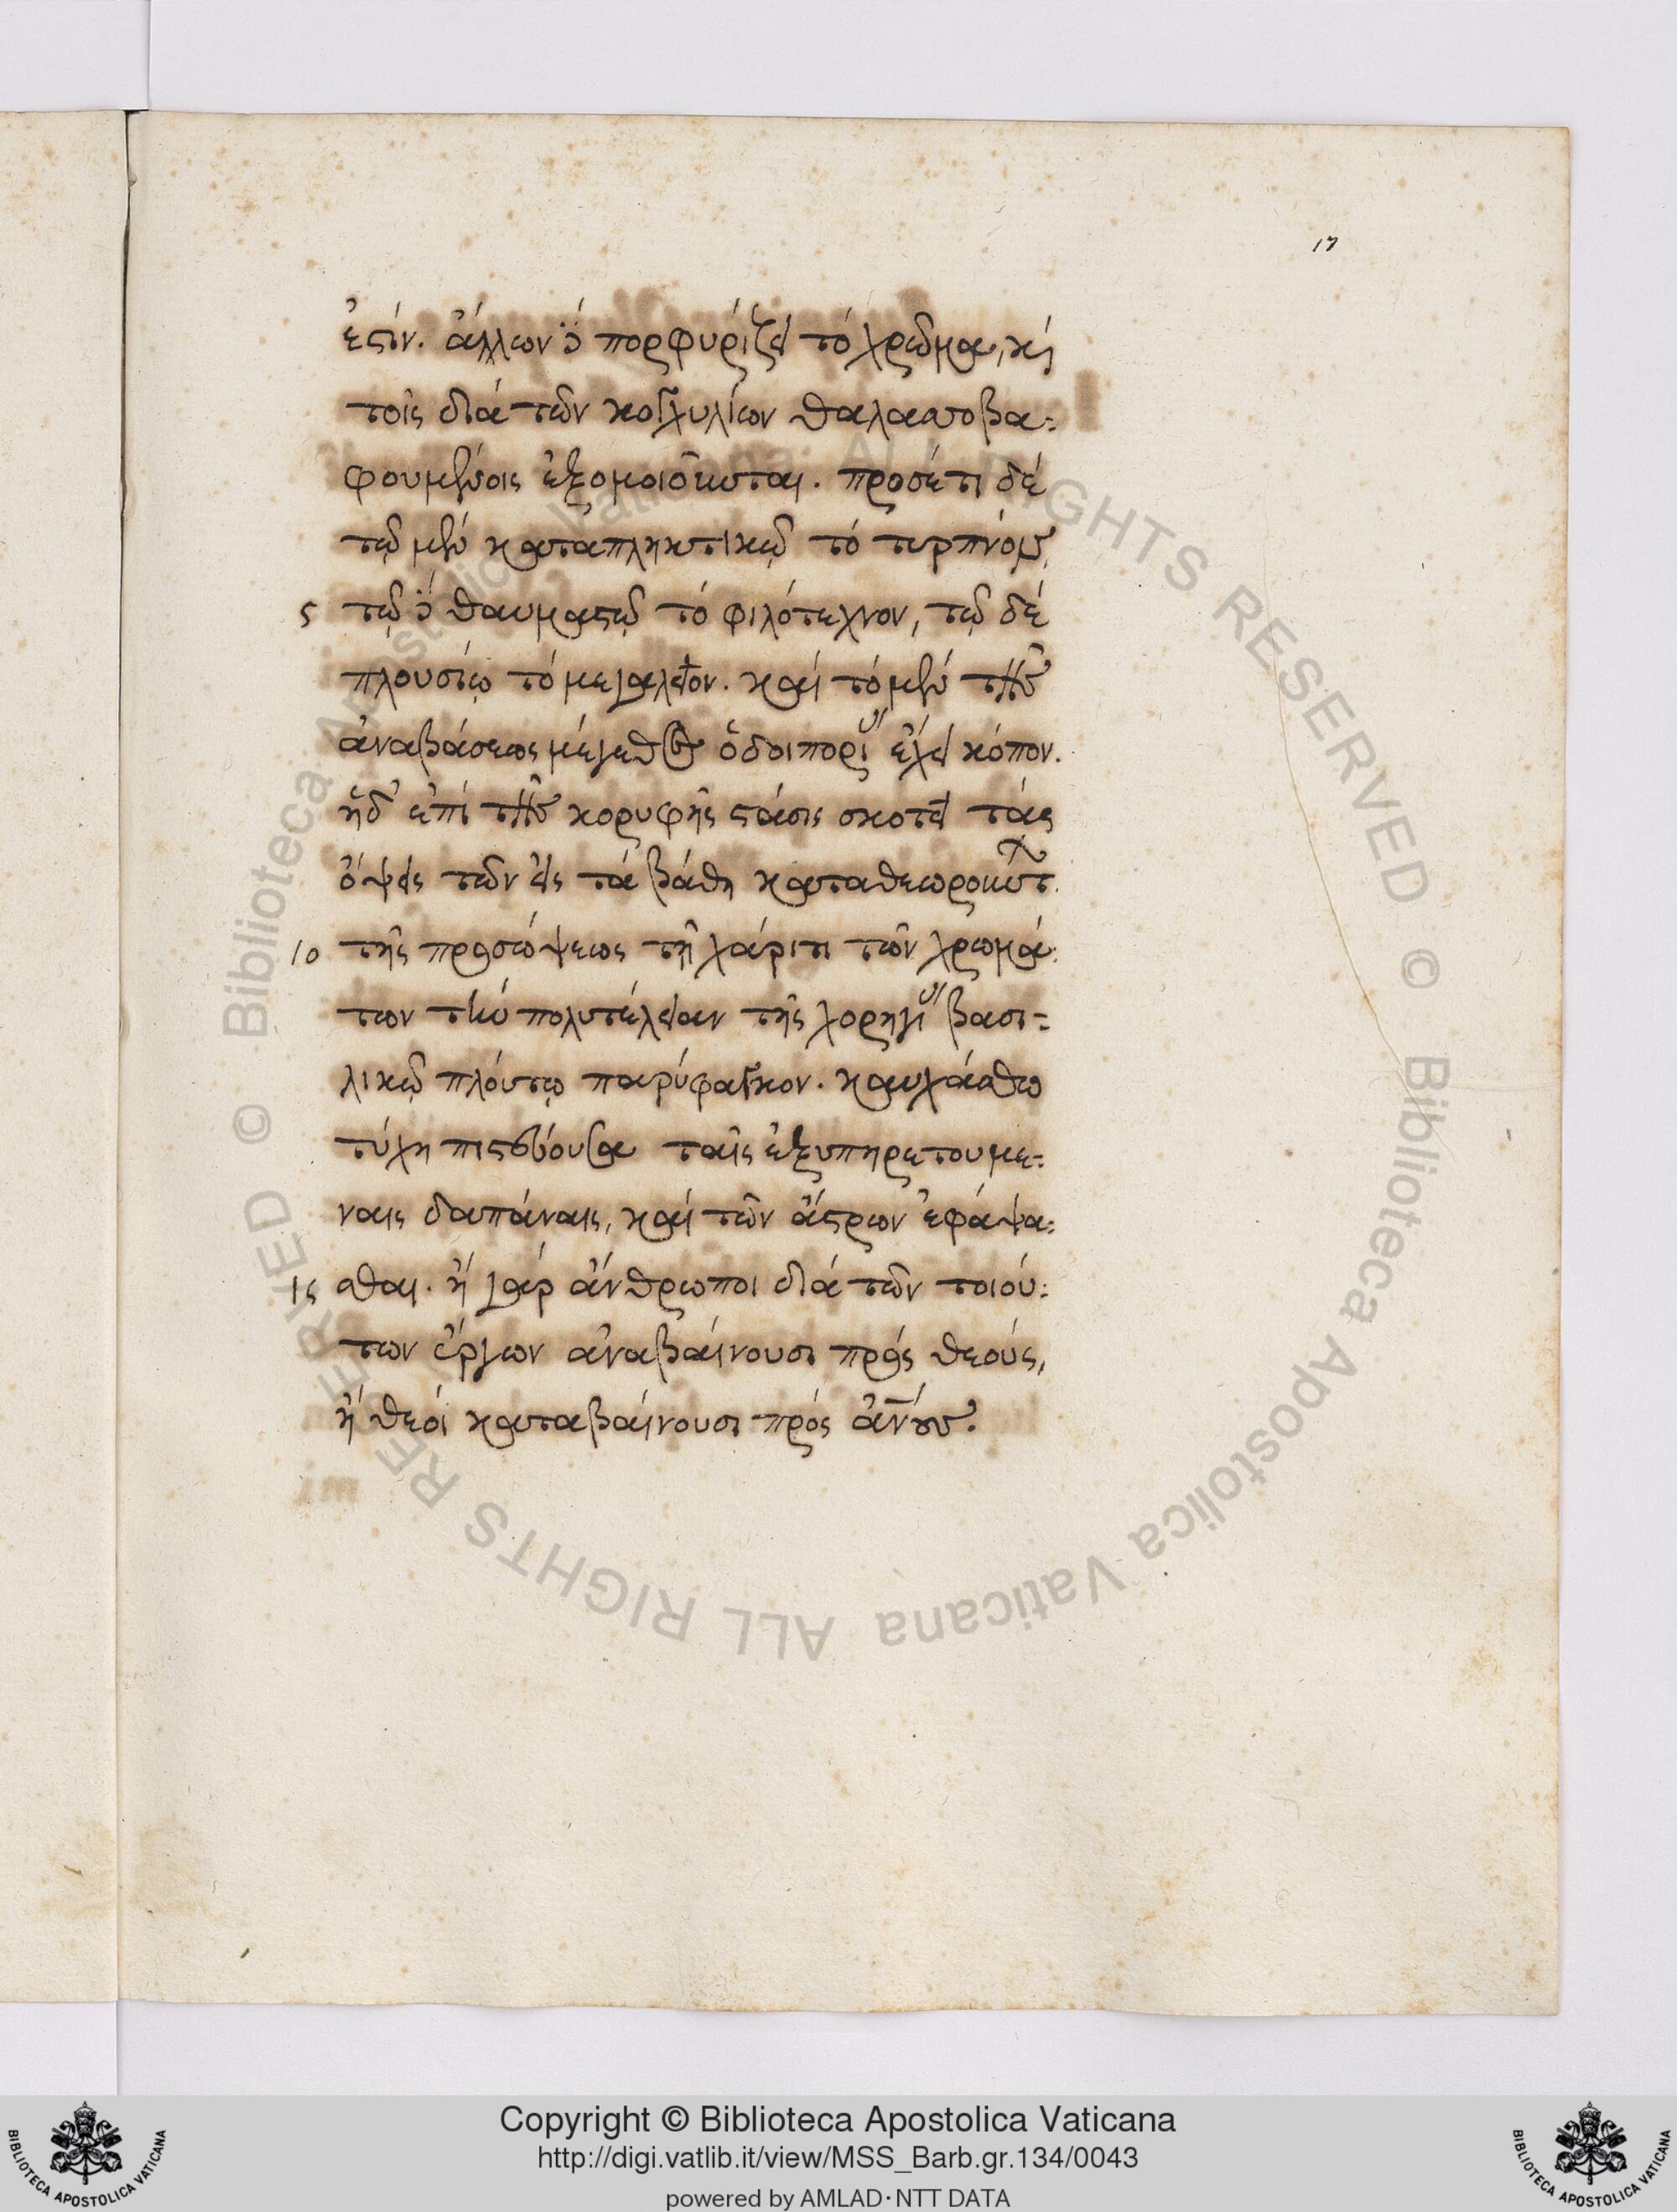 17
ἐστίν. ἄλλων δὲ πορφυρίζει τὸ χρῶμα, καὶ
τοῖς διὰ τῶν κογχυλίων θαλασσοβα-
φουμένοις ἐξομοιοῦται. προσέτι δὲ
τῷ μὲν καταπληκτικῷ τὸ τερπνὸν,
5 τῷ δὲ θαυμαστῷ τὸ φιλότεχνον, τῷ δὲ
πλουσίῳ τὸ μεγαλεῖον. καὶ τὸ μὲν τῆς
ἀναβάσεως μέγεθος ὁδοιπορίας ἔχει κόπον.
ἡ δ' ἐπὶ τῆς κορυφῆς στάσις σκοτεῖ τὰς
ὄψεις τῶν εἰς τὰ βάθη καταθεωρούντων.
10 τῆς προσόψεως τῇ χάριτι τῶν χρωμά-
των τὴν πολυτέλειαν τῆς χορηγίας βασι-
λικῷ πλούτῳ παρύφαγκον. καυχάσθω
τύχη πιστεύουσα ταῖς ἐξυπηρετουμέ-
ναις δαπάναις, καὶ τῶν ἄστρων ἐφάψα-
15 σθαι. ἢ γὰρ ἄνθρωποι διὰ τῶν τοιού-
των ἔργων ἀναβαίνουσι πρὸς θεούς,
ἢ θεοὶ καταβαίνουσι πρὸς ἀν̅ους.
© Biblioteca Apostolica Vaticana ALL RIGHTS RESERVED
Copyright © Biblioteca Apostolica Vaticana
http://digi.vatlib.it/view/MSS_Barb.gr.134/0043
powered by AMLAD·NTT DATA
BIBLIOTECA APOSTOLICA VATICANA
BIBLIOTECA APOSTOLICA VATICANA